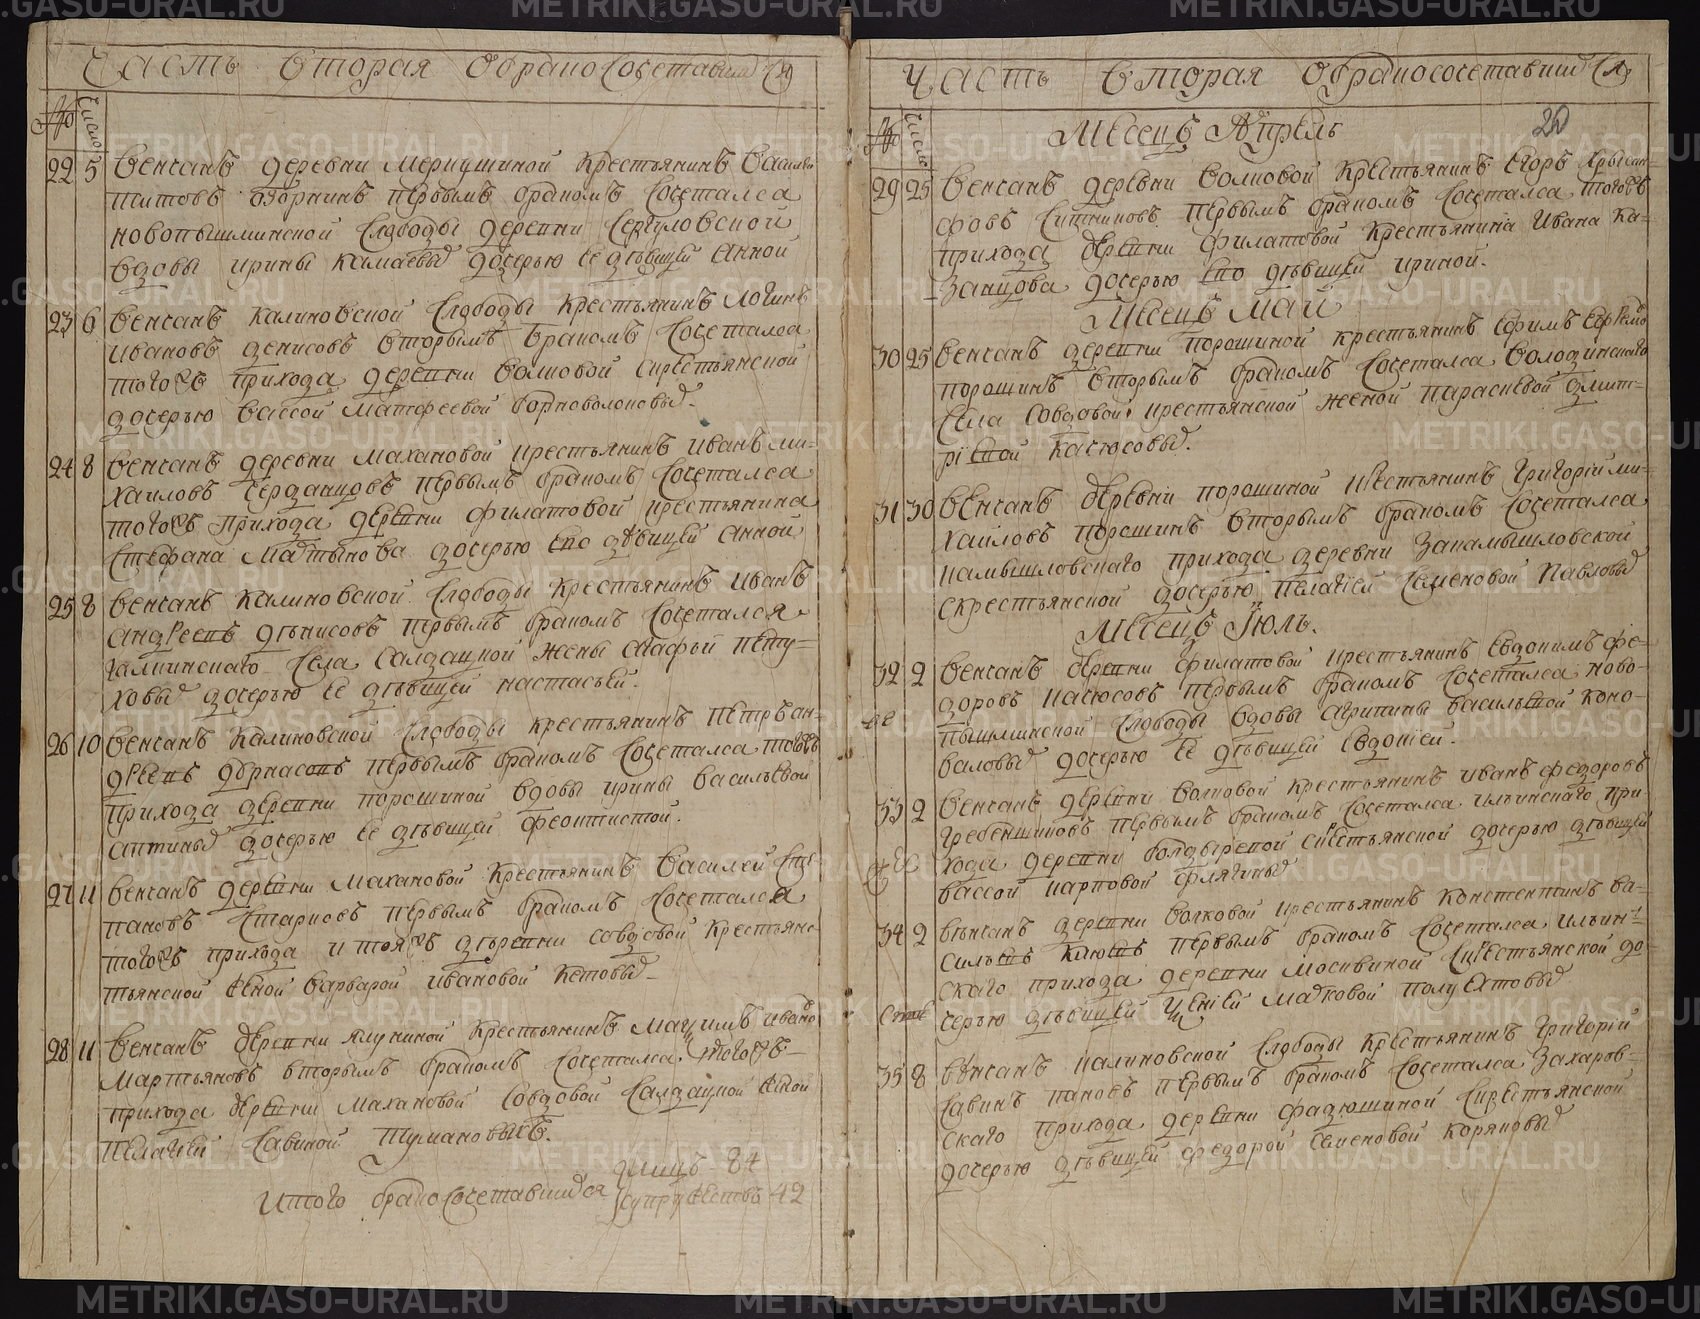 Часть вторая обракосочетавшихся
№ число
22 5 венчанъ деревни мернушиной крестьянинъ василей
титовъ первымъ бракомъ сочетался
новопышминской слободы деревни сергуловской
вдовы ирины камаевыхъ дочерью ее девицей анной
23 6 венчанъ калиновской слободы крестьянинъ логинъ
ивановъ денисовъ вторымъ бракомъ сочетался
тогожъ прихода деревни волковой скрестьянской
дочерью вассой матфеевой
24 8 венчанъ деревни махановой крестьянинъ иванъ ми-
хаиловъ первымъ бракомъ сочетался
тогожъ прихода деревни филатовой крестьянина
стефана мартынова дочерью ево девицей анной
25 8 венчанъ калиновской слободы крестьянинъ иванъ
андреевъ денисовъ первымъ бракомъ сочетался
села салдацкой жены агафьи пету-
ховыхъ дочерью ее девицей настасьей.
26 10 венчанъ калиновской слободы крестьянинъ петръ ан-
дреевъ первымъ бракомъ сочетался тогожъ
прихода деревни порошиной вдовы ирины васильевой
дочерью ее девицей феоктистой.
27 11 венчанъ деревни махановой крестьянинъ василей сте-
пановъ стариковъ первымъ бракомъ сочетался
тогожъ прихода и тояжъ деревни совдовой крестьянс-
тьянской женой варварой ивановой кетовыхъ
28 11 венчанъ деревни ялуниной крестьянинъ максимъ ивановъ
мартьяновъ вторымъ бракомъ сочетался тогожъ
прихода деревни махановой совдовой салдацкой женой
пелагией савиной тумановыхъ.
лицъ 84
Итого бракосочетавшихся супружествъ 42
Часть вторая обракосочетавшихся
20
№ число
Месецъ Апрель
29 25 венчанъ деревни волковой крестьянинъ егоръ хрисан-
фовъ ситниковъ первымъ бракомъ сочетался тогожъ
прихода деревни филатовой крестьянина ивана ка-
занцова дочерью ево девицей ириной.
Месецъ Май
30 25 венчанъ деревни порошиной крестьянинъ ефимъ
порошинъ вторымъ бракомъ сочетался володинскаго
села совдовой крестьянской женой парасковьей дмит-
ріевой касюсовыхъ.
31 30 венчанъ деревни порошиной крестьянинъ григорій ми-
хаиловъ порошинъ вторымъ бракомъ сочетался
камышловскаго прихода деревни закамышловской
скрестьянской дочерью пелагіей семеновой павловыхъ
Месецъ Іюль.
32 2 венчанъ деревни филатовой крестьянинъ евдокимъ фе-
доровъ касюсовъ первымъ бракомъ сочетался ново-
пышминской слободы вдовы агрипины васильевой коно-
валовыхъ дочерью ее девицей евдокіей.
33 2 венчанъ деревни волковой крестьянинъ иванъ федоровъ
гребенщиковъ первымъ бракомъ сочетался ильинскаго при-
хода деревни болдыревой скрестьянской дочерью девицей
вассой карповой флягиныхъ
34 2 венчанъ деревни волковой крестьянинъ констентинъ ва-
сильевъ первымъ бракомъ сочетался ильин-
скаго прихода деревни москвиной скрестьянской до-
черью девицей марковой полуехтовыхъ
35 8 венчанъ калиновской слободы крестьянинъ григорій
савинъ пановъ первымъ бракомъ сочетался захаров-
скаго прихода деревни фадюшиной скрестьянской
дочерью девицей федорой семеновой коряковыхъ